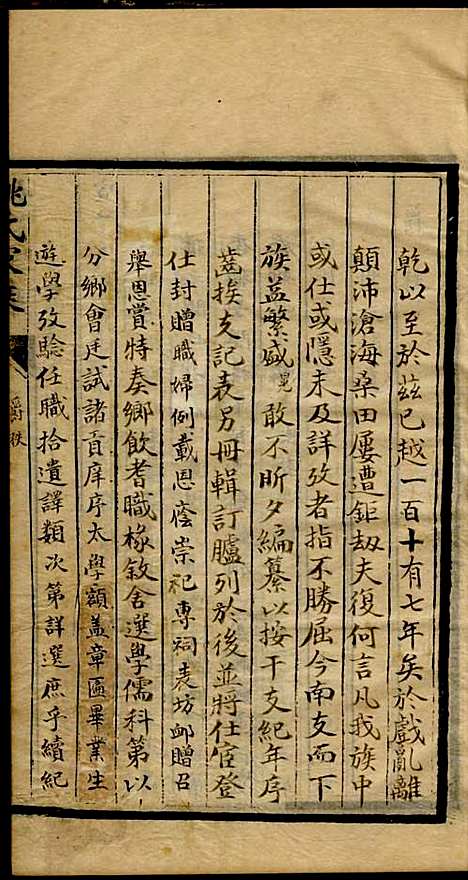 乾以至於茲已越一百十有七年矣於戲亂離
顛沛滄海桑田屢遭鉅劫夫復何言凡我族中
或仕或隱未及詳攷者指不勝屈今南支而下
族益繁盛晃敢不昕夕編纂以按干支紀年序
齒挨支記表另冊輯訂臚列於後並將仕宦登
仕封贈職婦例載恩蔭崇祀專祠表坊卹贈召
舉恩賞特奏鄉飲耆職椽敘舍選學儒科第以
分鄉會廷試諸貢庠序太學額蓋章匾畢業生
遊學攷驗任職拾遺譯類次第詳選庶乎續紀
姚氏家
爵秩